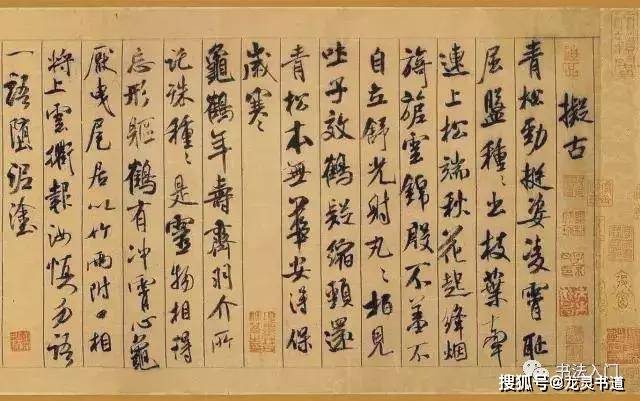 擬古
青松勁挺姿凌霄恥
屈盤種〻出枝葉牽
連上松端秋花起絳烟
旖旎雲錦殷不羞不
自立舒光射丸〻柏見
吐子效鶴疑縮頸還
青松本無華安得保
歲寒
龜鶴年壽齊羽介所
託殊種〻是靈物相得
忘形軀鶴有冲霄心龜
厭曳尾居以竹兩附口相
將上雲衢報汝慎勿語
一語墮泥塗
书法入门
搜狐号@龙灵书道